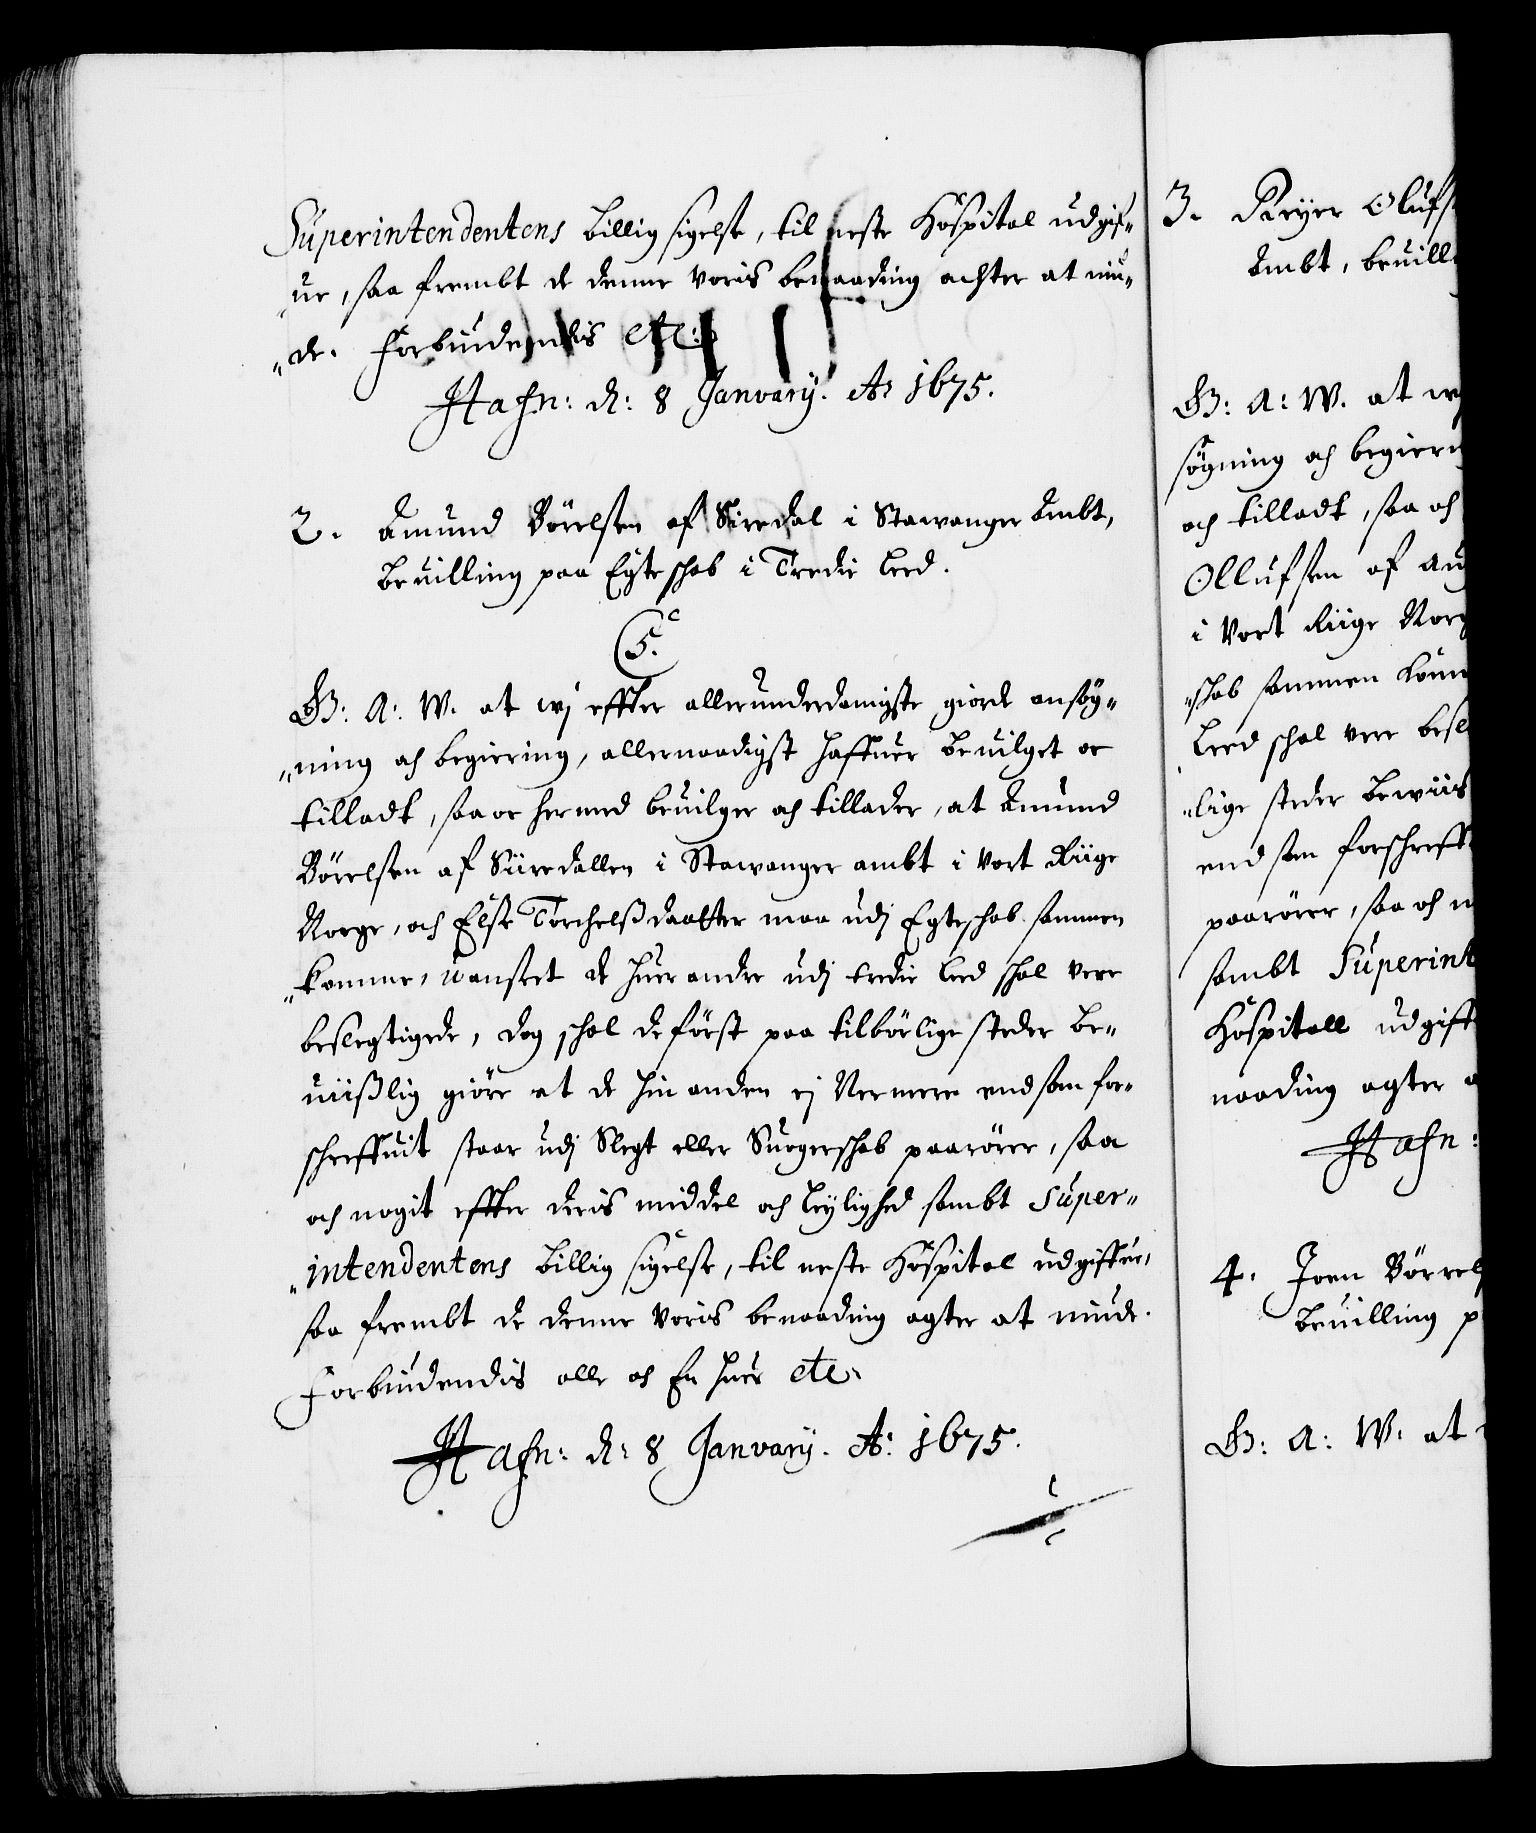 Superintendentens billig sigelse, til neste Hospital udgif„
ue, saa frembt de denne voris benaading achter at niu„
„de. Forbiudendis etc:
Hafn: d: 8 January. Aō 1675.
2. Amund Börelsen af Siredal i Stawanger Ambt,
beuilling paa Egteschab i Tredie Leed.
C5.
G: A: W. at wj effter allerunderdanigste giorde ansög„
„ning och begiering, allernaadigst haffuer beuilget oc
tilladt, saa oc hermed beuilger och tillader, at Amund
Börelsen af Siiredallen i Stawanger ambt i vort Riige
Norge, och Else Torchelsdaatter maa udj Egteschab sammen
„komme, uanseet de huer andre udj tredie Leed schal vere
beslegtigede, dog schal de först paa tilbörlige steder be„
uiißlig giöre at de hin anden ej Nermere end som for„
schreffuit staar udj Slegt eller Suogerschab paarörer, saa
och nogit effter deris middel och leylighed sambt Super„
„intendentens billig sigelse, til neste Hospital udgiffue,
saa frembt de denne voris benaading agter at niude.
Forbiudendis alle och En huer etc.
Hafn: d: 8 January. Aō: 1675.
3. Reyer Olufs
Ambt, beuill
G: A: W. at w
sögning och begier
och tilladt, saa och
Ollufsen af Au
i vort Riige Norg
„schab sammen kom
Leed schal vere besl
„lige steder bewiis
end som forschreff
paarörer, saa och n
sambt Superint
Hospitall udgiff
naading agter a
Hafn:
4. Joen Börrel
beuilling p
G: A: W. at